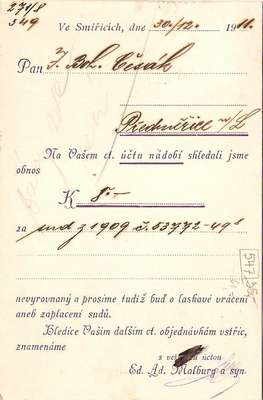 271/8
549
Ve Smiřicích, dne 30./12. 1911.
Pan J. Boh. Čěsák
Předměřice n/L
Na Vašem ct. účtu nádobí shledali jsme
obnos
K 8.–
za sud z 1909 č. 53772-49 l
547 35
nevyrovnaný a prosíme tudíž buď o laskavé vrácení
aneb zaplacení sudů.
Hledíce Vašim dalším ct. objednávkám vstříc,
znamenáme
z veškerou úctou
Ed. Ad. Malburg a syn.